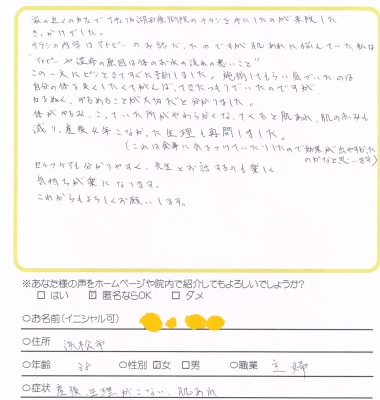 家の近くのカフェで
治療院のチラシを手にしたのが来院した
きっかけでした。
チラシの内容はアトピーのお話だったのですが肌あれに悩んでいた私は
「アトピーや湿疹の原因は体のお水の流れの悪いこと」
この一文にピンときてすぐに予約しました。施術してもらい気づいたのは
自分の体を良くしたくてがんばってきたつもりでいたのですが
力をぬく、ゆるめることが大切だと分かりました。
体がゆるみ、こっていた所がやわらかくなってくると肌あれ、肌の赤みも
減り、産後 こなかった生理も再開しました。
(これは食事に気をつけていたりしたので効果が出やすかった
のかなと思います)
セルフケアも分かりやすく、先生とお話するのも楽しく
気持ちが楽になります。
これからもよろしくお願いします。
※あなた様の声をホームページや院内で紹介してもよろしいでしょうか?
□ はい ☑ 匿名ならOK □ ダメ
○お名前(イニシャル可)
○住所 浜松市
○年齢 38 ○性別 ☑女 □男 ○職業 主婦
○症状 産後、生理がこない、肌あれ